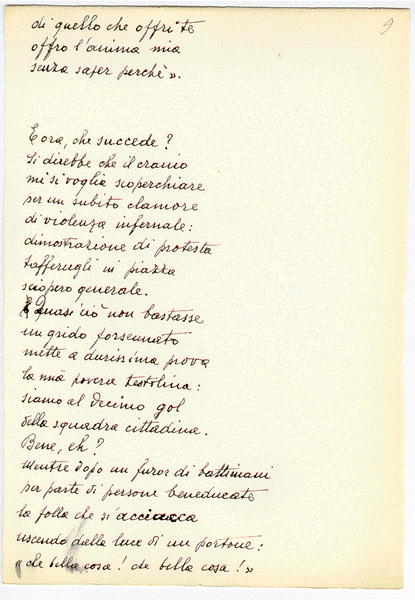 9
di quello che offrite
offro l'anima mia
senza saper perchè».
E ora, che succede?
Si direbbe che il cranio
mi si voglia scoperchiare
per un subito clamore
di violenza infernale:
dimostrazione di protesta
tafferugli in piazza
sciopero generale.
Quasi ciò non bastasse
un grido forsennato
mette a durissima prova
la mia povera testolina:
siamo al decimo gol
della squadra cittadina.
Bene, eh?
Mentre dopo un furor di battimani
per parte di persone beneducate
la folla che si acciacca
uscendo dalla luce di un portone:
«che bella cosa! che bella cosa!»